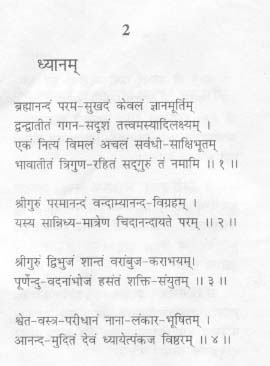 2
ध्यानम्
ब्रह्मानन्दं परम-सुखदं केवलं ज्ञानमूर्तिम्
द्वन्द्वातीतं गगन-सदृशं तत्त्वमस्यादिलक्ष्यम् ।
एकं नित्यं विमलं अचलं सर्वधी-साक्षिभूतम्
भावातीतं त्रिगुण-रहितं सद्गुरुं तं नमामि ॥ १ ॥
श्रीगुरुं परमानन्दं वन्दाम्यानन्द-विग्रहम् ।
यस्य सान्निध्य-मात्रेण चिदानन्दायते परम् ॥ २ ॥
श्रीगुरुं द्विभुजं शान्तं वरांबुज-कराभयम् ।
पूर्णेन्दु-वदनांभोजं हसंतं शक्ति-संयुतम् ॥ ३ ॥
श्वेत-वस्त्र-परीधानं नाना-लंकार-भूषितम् ।
आनन्द-मुदितं देवं ध्यायेत्पंकज विष्टरम् ॥ ४ ॥